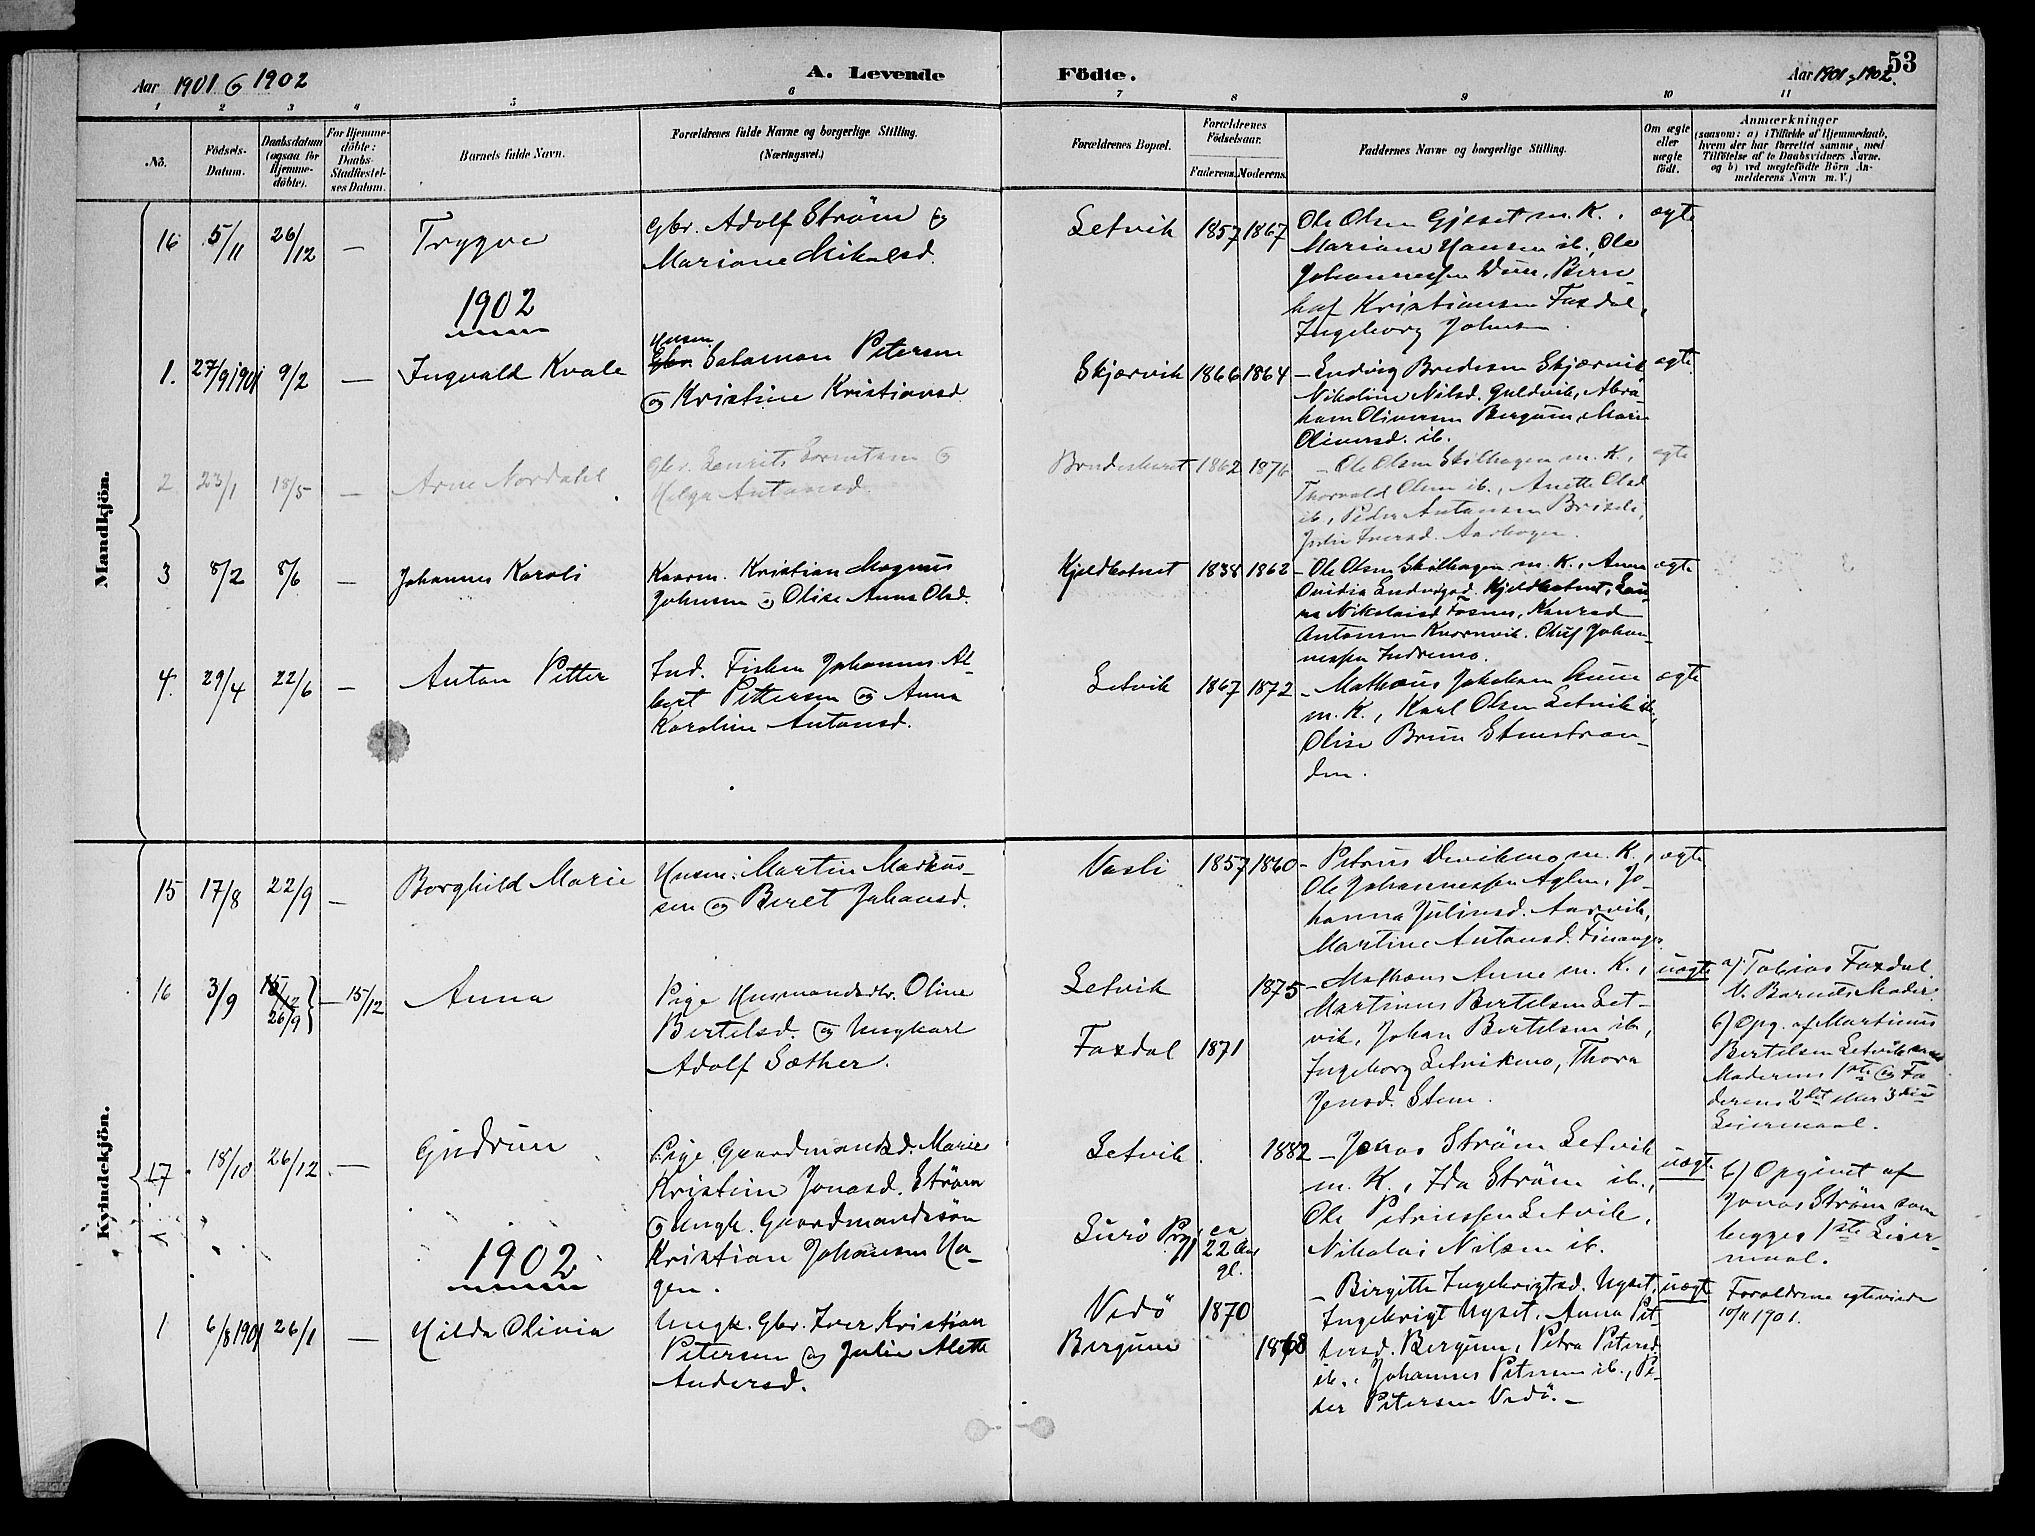 53
Aar 1901 & 1902
A. Levende
Födte.
Aar 1901 & 1902.
1 2 3 4 5 6 7 8 9 10 11
No.
Födsels-
Datum.
Daabsdatum
(ogsaa for
Hjemme-
döbte).
For Hjemme-
döbte:
Daabs-
Stadfæstel-
ses Datum.
Barnets fulde Navn.
Forældrenes fulde Navne og borgerlige Stilling.
(Næringsvei.)
Forældrenes Bopæl.
Forældrenes
Födselsaar.
Faderens. Moderens.
Faddernes Navne og borgerlige Stilling.
Om ægte
eller
uægte
födt.
Anmærkninger
(saasom: a) i Tilfælde af Hjemmedaab,
hvem der har forrettet samme, med
Tilföielse af to Daabsvidners Navne,
og b) ved uægtefödte Börn An-
melderens Navn m. V.)
Mandkjön.
16 5/11 26/12 — Trygve
Gbr. Adolf Ström og
Mariane Mikalsd.
Letvik 1857 1867
Ole Olsen Gjeset m. K.,
Mariane Hansen ib., Ole
Johannessen Duun, Bern-
haf Kristiansen Faxdal,
Ingeborg Johnsen.
ægte
1902
1. 27/9 1901 9/2 — Ingvald Kvale
Husm.
Gbr. Salamon Petersen
og Kristine Kristiansd.
Skjærvik 1866 1864
— Ludvig Bredesen Skjærvik
Nikoline Nilsd. Guldvik, Abra-
ham Oliversen Bergum, Marie
Oliversd. ib.
ægte.
2 23/1 18/5 — Arne Nordahl
Gbr. Laurits Lorntsen og
Helga Antonsd.
1862 1876
— Ole Olsen Skilhagen m. K.,
Thorvald Olsen ib., Anette Olsd.
ib., Peder Antonsen
ægte
3 8/2 8/6 — Johannes Karoli
Kaarm. Kristian Magnus
Johnsen og Olise Anna Olsd.
Kjeldbotnet 1838 1862
— Ole Olsen Skilhagen m. K., Anna
Ovidia Ludvigsd. Kjeldbotnet, Lau-
ra Nikolaisd Fosnes, Konrad
Antonsen Kvernvik. Oluf Johan-
nessen Indremo.
ægte
4. 29/4 22/6 — Anton Petter
Ind. Fisker Johannes Al-
bert Pettersen og Anna
Karoline Antonsd.
Letvik 1867 1872
— Mathæus Jakobsen Aune
m. K., Karl Olsen Letvik ib.,
Olise Brun Stenstran-
den.
ægte
Kvindekjön.
15 17/8 22/9 — Borghild Marie
Husm. Martin Markus-
sen og Beret Johansd.
Vasli 1857 1860
— Petrus Devikmo m. K.,
Ole Johannessen Aglen, Jo-
hanna Juliusd. Aarvik,
Martine Antonsd. Finanger.
ægte
16 3/9 15/12 26/9 — 15/12 Anna
Pige Husmandsdtr. Oline
Bertelsd. og Ungkarl
Adolf Sæther.
Letvik 1875
Faxdal 1871
— Mathæus Aune m. K.,
Martinus Bertelsen Let-
vik, Johan Bertelsen ib.,
Ingeborg Letvikmo, Thora
Jensd. Sten.
uægte
a) Tobias Faxdal.
V. Barnets Moder.
b) Opg. af Martinus
Bertelsen Letvik som
Moderens 1ste og Fa-
derens 2det eller 3die
Leiermaal.
17 18/10 26/12 — Gudrun
Pige Gaardmandsd. Marie
Kristine Jonasd. Ström
og Ungk. Gaardmandssön
Kristian Johansen Ha-
gen.
Letvik 1882
Lurö Prgj ca 22 Aar gl.
— Jonas Ström Letvik
m. K., Ida Ström ib.,
Ole Petrussen Letvik,
Nikolai Nilsen ib.
uægte
b) Opgivet af
Jonas Ström som
begges 1ste Leier-
maal.
1902
1 6/8 1901 26/1 — Hilda Olivia
Ungk. Gbr. Iver Kristian
Petersen og Julie Alette
Andersd.
Vedö 1870
Bergum 1868
— Birgitte Ingebrigtsd. Nyset,
Ingebrigt Nyset, Anna Pet-
tersd. Bergum, Petra Petersd.
ib., Johannes Petersen ib., Pe-
der Petersen Vedö. —
uægte
Forældrene egteviede
10/11 1901.